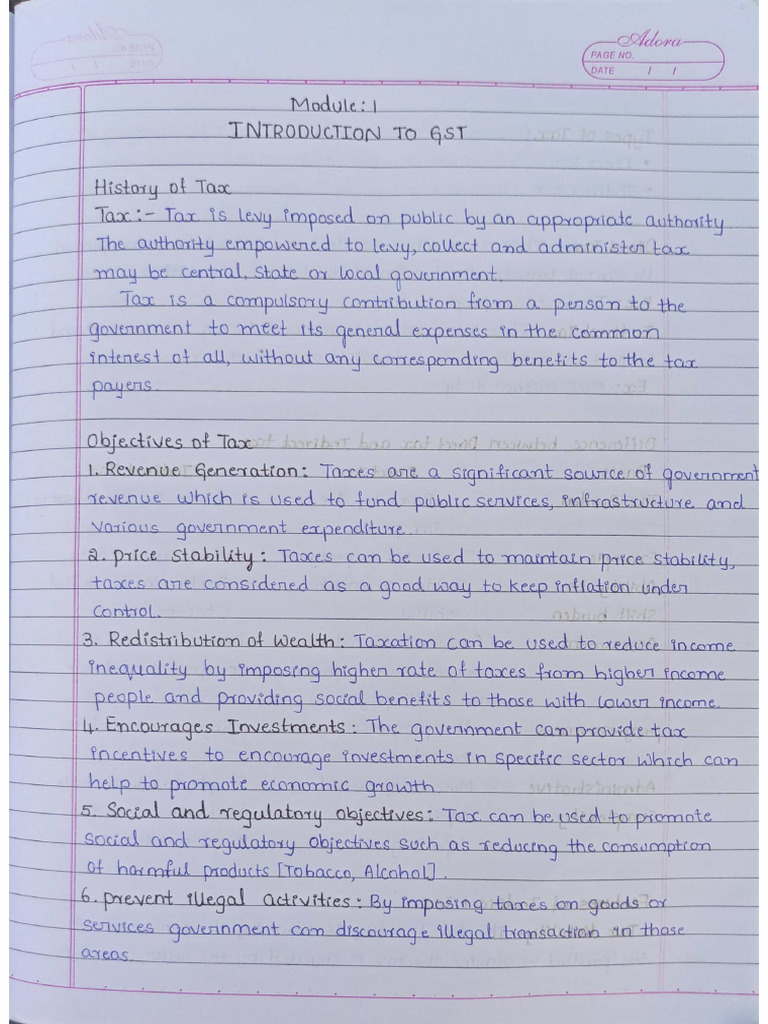 Adora
PAGE NO.
DATE / /
Module: 1
INTRODUCTION TO GST
History of Tax
Tax :- Tax is levy imposed on public by an appropriate authority.
The authority empowered to levy, collect and administer tax
may be central, state or local government.
Tax is a compulsory contribution from a person to the
government to meet its general expenses in the common
interest of all, without any corresponding benefits to the tax
payers.
Objectives of Tax
1. Revenue Generation: Taxes are a significant source of government
revenue which is used to fund public services, infrastructure and
various government expenditure.
2. price stability: Taxes can be used to maintain price stability,
taxes are considered as a good way to keep inflation under
control.
3. Redistribution of Wealth: Taxation can be used to reduce income
inequality by imposing higher rate of taxes from higher income
people and providing social benefits to those with lower income.
4. Encourages Investments: The government can provide tax
incentives to encourage investments in specific sector which can
help to promote economic growth.
5. Social and regulatory objectives: Tax can be used to promote
social and regulatory objectives such as reducing the consumption
of harmful products [Tobacco, Alcohol].
6. prevent illegal activities: By imposing taxes on goods or
services government can discourage illegal transaction in those
areas.